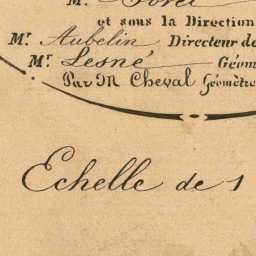 Mr.
et sous la Direction
Mr. Aubelin Directeur de
Mr. Lesné Géom
Par M Cheval Géomètre
Echelle de 1